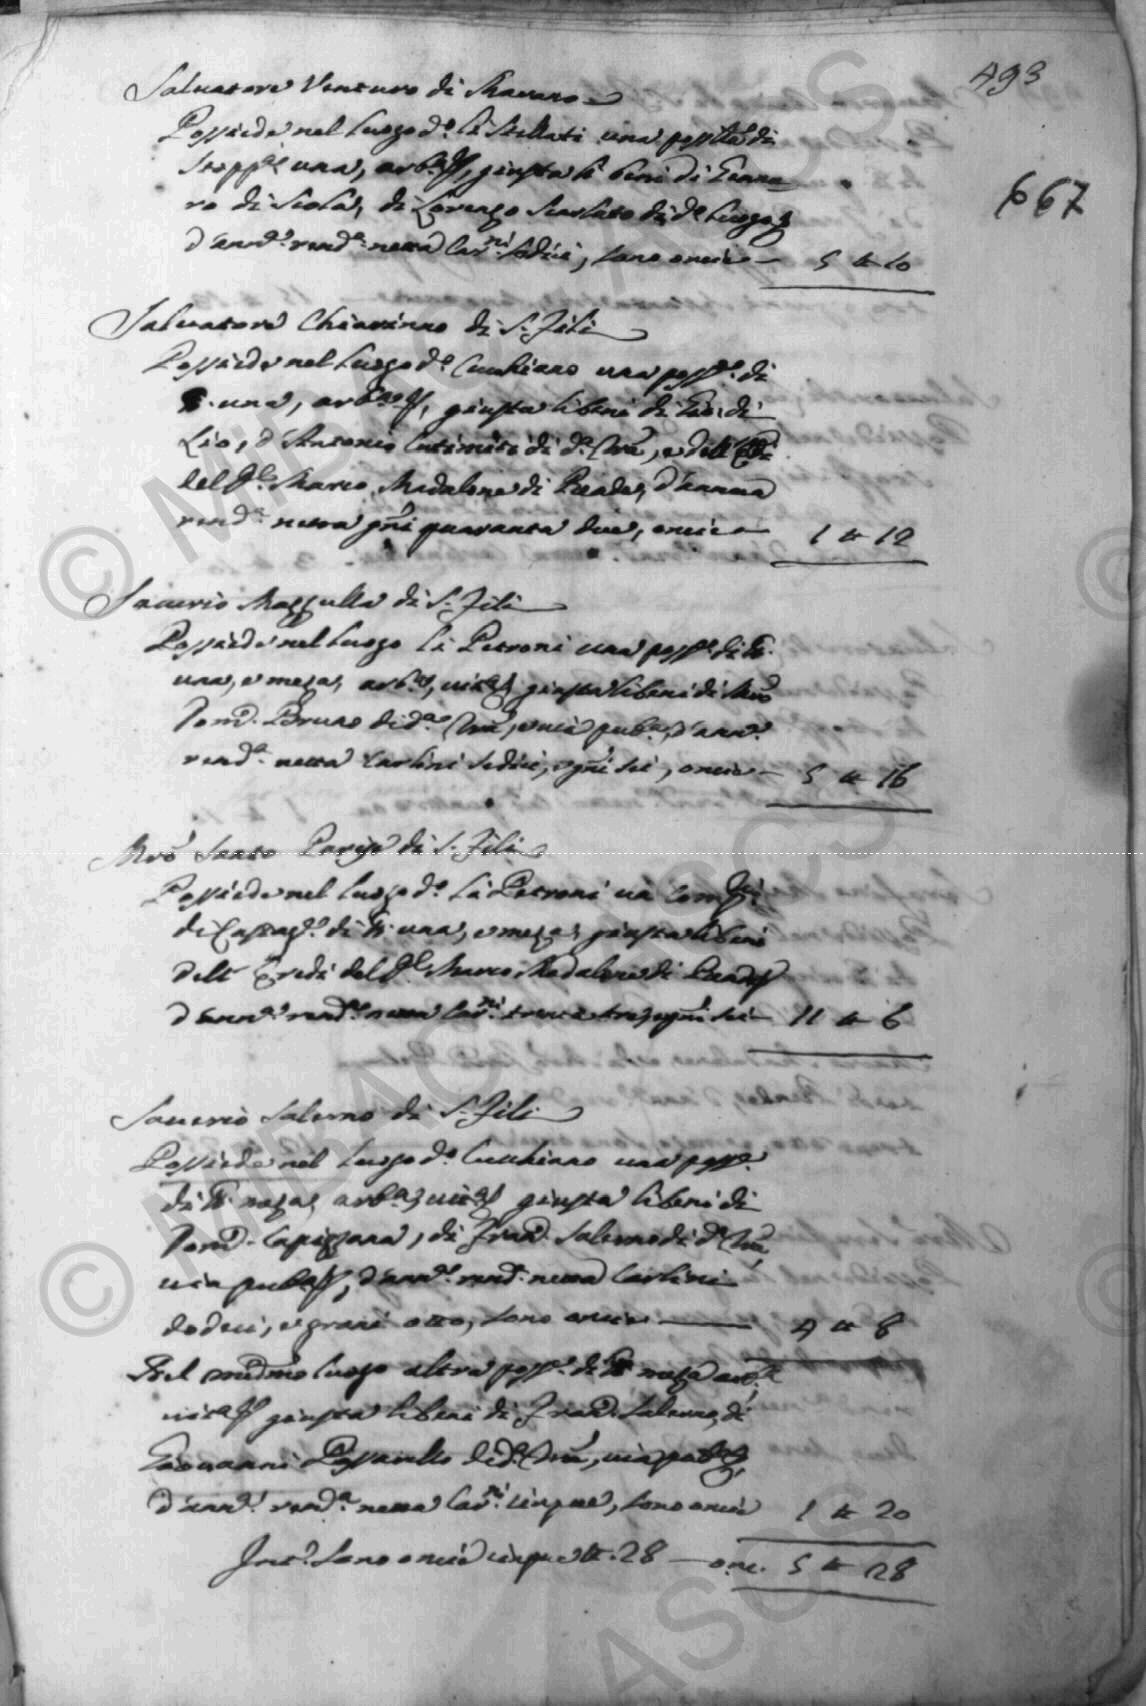 493
667
Salvatore Venturo di Marano
Possiede nel luogo d.º li Scillati una poss.ne di
stopp.e una, arb.a, giusta li beni di Genna
ro di Ciolà, di Lorenzo Scarlato di d.º luogo
d'ann.a rend.a netta Car.ni sedici, sono oncie — 5 tt 10
Salvatore Chiarinno di S. Fili
Possiede nel luogo d.º Cucchiano una poss.e di
una, arb.a, giusta li beni di Gio: di
Lio, d'Antonio di d.a Trã, e dell'Eredi
del Marco Madalone di Rende, d'annua
rend.a netta grñi quaranta due, oncie — 1 tt 12
Saverio Mazzulla di S. Fili
Possiede nel luogo li Petroni una poss.e di tt.
una, e meza, arb.a, vit.a giusta li beni di Mrõ
Dom.º Bruno di d.a Trã, e via pub.a, d'ann.a
rend.a netta Carlini sedici, e grñi sei, oncie — 5 tt 16
Mrõ Santo Parise di S. Fili
Possiede nel luogo d.º li Petroni un
di Castag.e di tt. una, e meza, giusta li beni
dell'Eredi del Marco Madalone di Rende
d'ann.a rend.a netta Car.ni trenta tre, e grñi sei — 11 tt 6
Saverio Salerno di S. Fili
Possiede nel luogo d.º Cucchiano una poss.e
di tt. meza, arb.a, vit.a giusta li beni di
Dom.º Capizzana, di Fran.º Salerno di d.a Trã
via pub.a, d'ann.a rend.a netta Carlini
dodeci, e grani otto, sono oncie — 4 tt 8
Nel medmo luogo altra poss.e di tt. meza arb.a
vit.a giusta li beni di Fran.º Salerno, di
Giovanni Passarello di d.a Trã, via pub.a,
d'ann.a rend.a netta Car.ni cinque, sono oncie 1 tt 20
Int.º sono oncie cinque tt. 28 — onc. 5 tt 28
© MIBAC ASCS
© MIBAC ASCS
ASCS